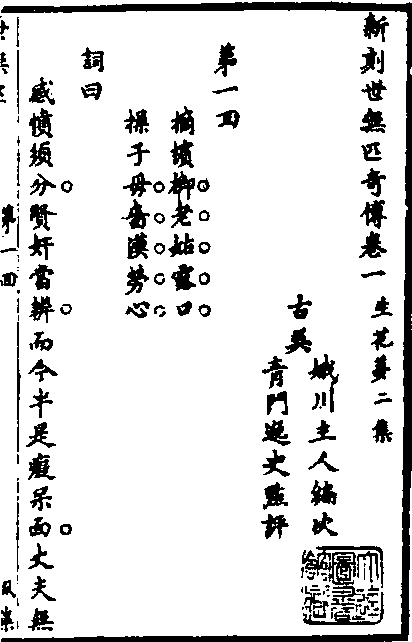 新刻世無匹奇傳卷一
生花夢二集
古吳
娥川主人編次
青門逸史點評
第一回
摘檳榔老姑露口
操子母嗇漢勞心
詞曰
感憤須分賢奸當辨而今半是癡呆面丈夫無
第一回